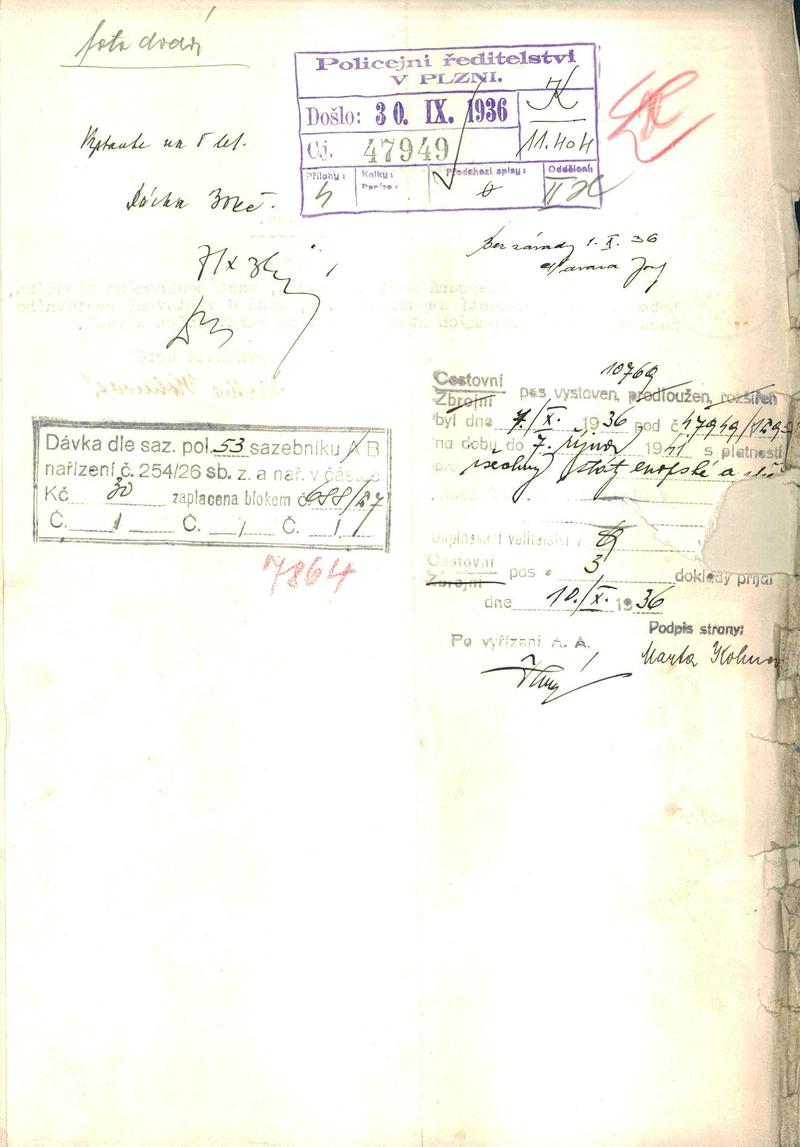 foto dodá
Policejní ředitelství
V PLZNI.
Došlo: 30. IX. 1936
K
Čj. 47949
11.404
Přílohy: 4
Kolky:
Peníze:
Předchozí spisy: 0
Oddělení: II
na 5 let.
Dávka 30 Kč.
Bez závady 1. X. 36
10769
Cestovní
Zbrojní
pas vystaven, prodloužen, rozšířen
byl dne 7/X. 1936 pod č. 47949/129
na dobu do 7. října 1941 s platností
všechny státy evropské a
Doplňovací velitelství v
Cestovní
Zbrojní
pas a 3 doklady přijal
dne 10./X. 1936
Podpis strany:
Marta Kohnov
Po vyřízení A. A.
Dávka dle saz. pol. 53 sazebníku A B
nařízení č. 254/26 sb. z. a nař. v částce
Kč 30 zaplacena blokem č. 688/27
Č. / Č. / Č. /
7864